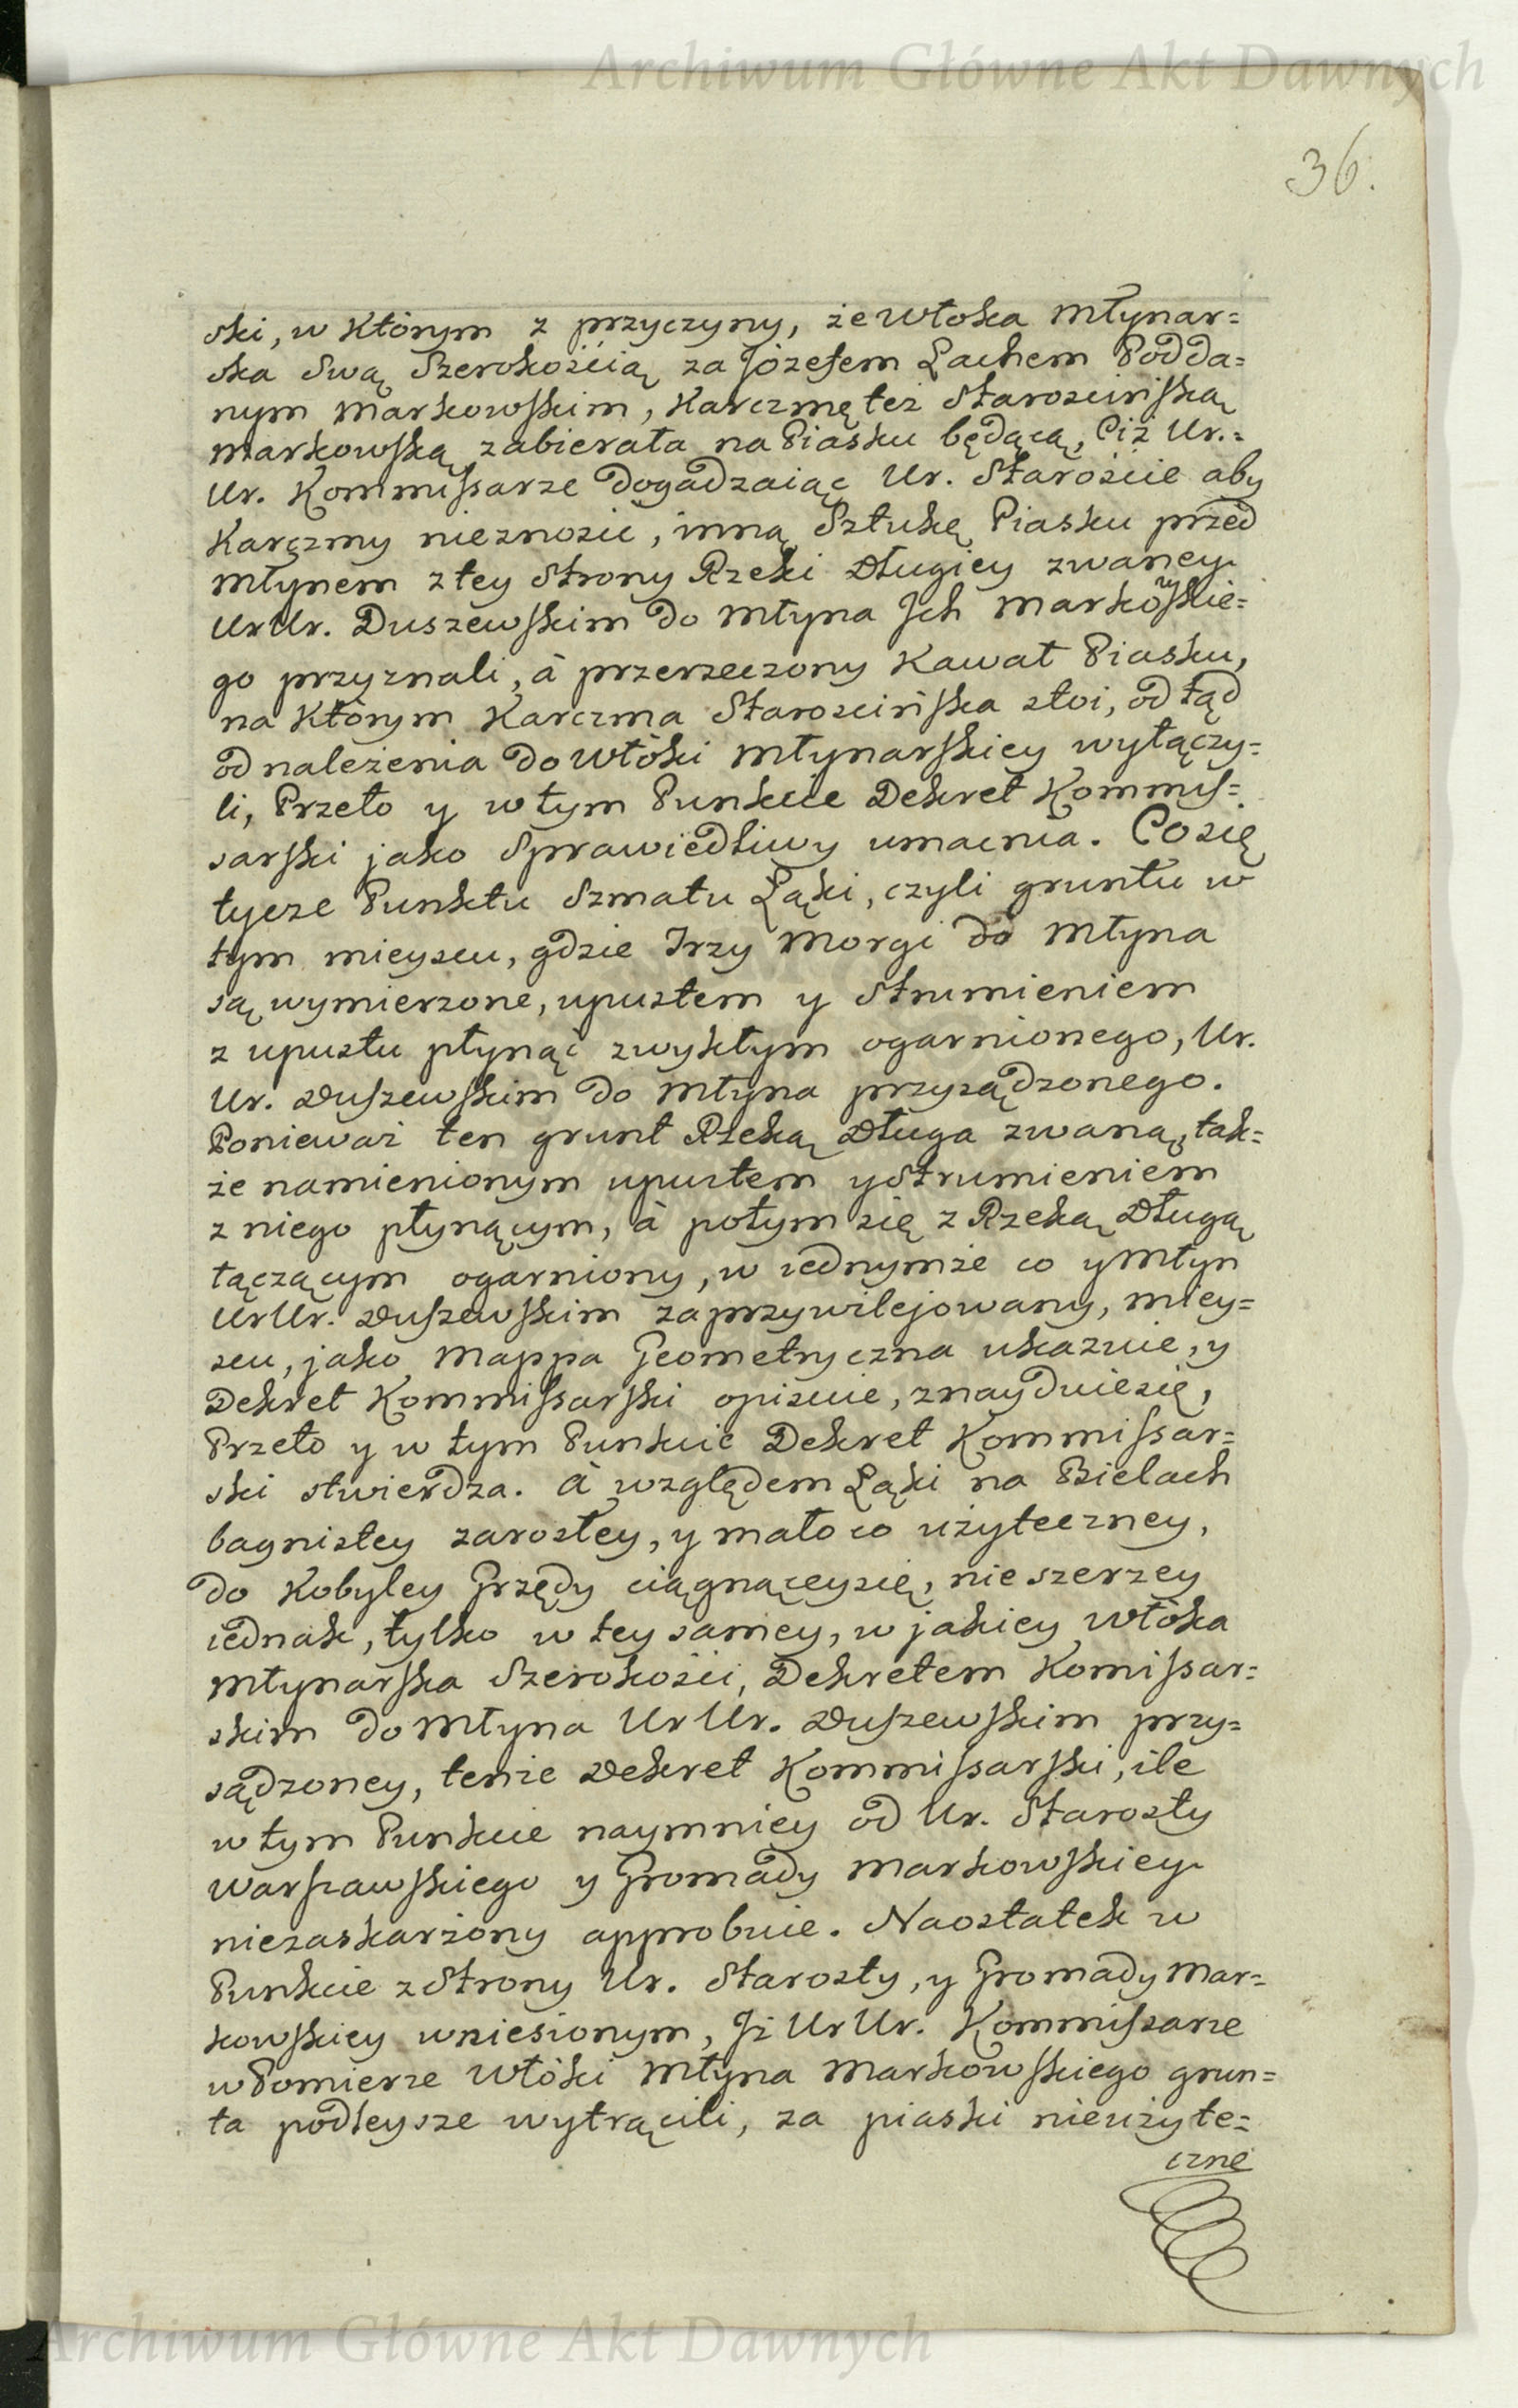 Archiwum Główne Akt Dawnych
36.
ski, w którym z przyczyny, że Włoka Młynar=
ska Swą Szerokością za Józefem Lachem Podda=
nym Markowskim, Karczmę też Starościńską
Markowską zabierała na Piasku będącą, Ciż Ur.=
Ur. Kommissarze dogadzaiąc Ur. Staroście aby
Karczmy nieznosić, inną Sztukę Piasku przed
Młynem z tey Strony Rzeki Długiey zwaney
UrUr. Duszewskim do Młyna Ich Markowskie=
go przyznali, à przerzeczony Kawał Piasku,
na którym Karczma Starościńska stoi, odtąd
od należenia do Włóki Młynarskiey wyłączy=
li, Przeto y w tym Punkcie Dekret Kommis=
sarski jako Sprawiedliwy umacnia. Co się
tycze Punktu Szmatu Łąki, czyli gruntu w
tym mieyscu, gdzie Trzy Morgi do Młyna
są wymierzone, upustem y Strumieniem
z upustu płynąć zwykłym ogarnionego, Ur.
Ur. Duszewskim do Młyna przysądzonego.
Ponieważ ten grunt Rzeką Długa zwaną, tak=
że namienionym upustem y Strumieniem
z niego płynącym, à potym się z Rzeką Długą
łączącym ogarniony, w iednymże co y Młyn
UrUr. Duszewskim zaprzywilejowany, miey=
scu, jako Mappa Geometryczna ukazuie, y
Dekret Kommissarski opisuie, znayduie się,
Przeto y w tym Punkcie Dekret Kommissar=
ski stwierdza. à względem Łąki na Bielach
bagnistey zarosłey, y mało co użyteczney,
do Kobyley Grzędy ciągnącey się, nie szerzey
iednak, tylko w tey samey, w jakiey Włóka
Młynarska Szerokości, Dekretem Komissar=
skim do Młyna UrUr. Duszewskim przy=
sądzoney, tenże Dekret Kommissarski, ile
w tym Punkcie naymniey od Ur. Starosty
Warszawskiego y Gromady Markowskiey
niezaskarżony approbuie. Naostatek w
Punkcie z Strony Ur. Starosty, y Gromady Mar=
kowskiey wniesionym, Iż UrUr. Kommissarze
w Pomierze Włóki Młyna Markowskiego grun=
ta podleysze wytrącili, za piaski nieużyte=
czne
Archiwum Główne Akt Dawnych